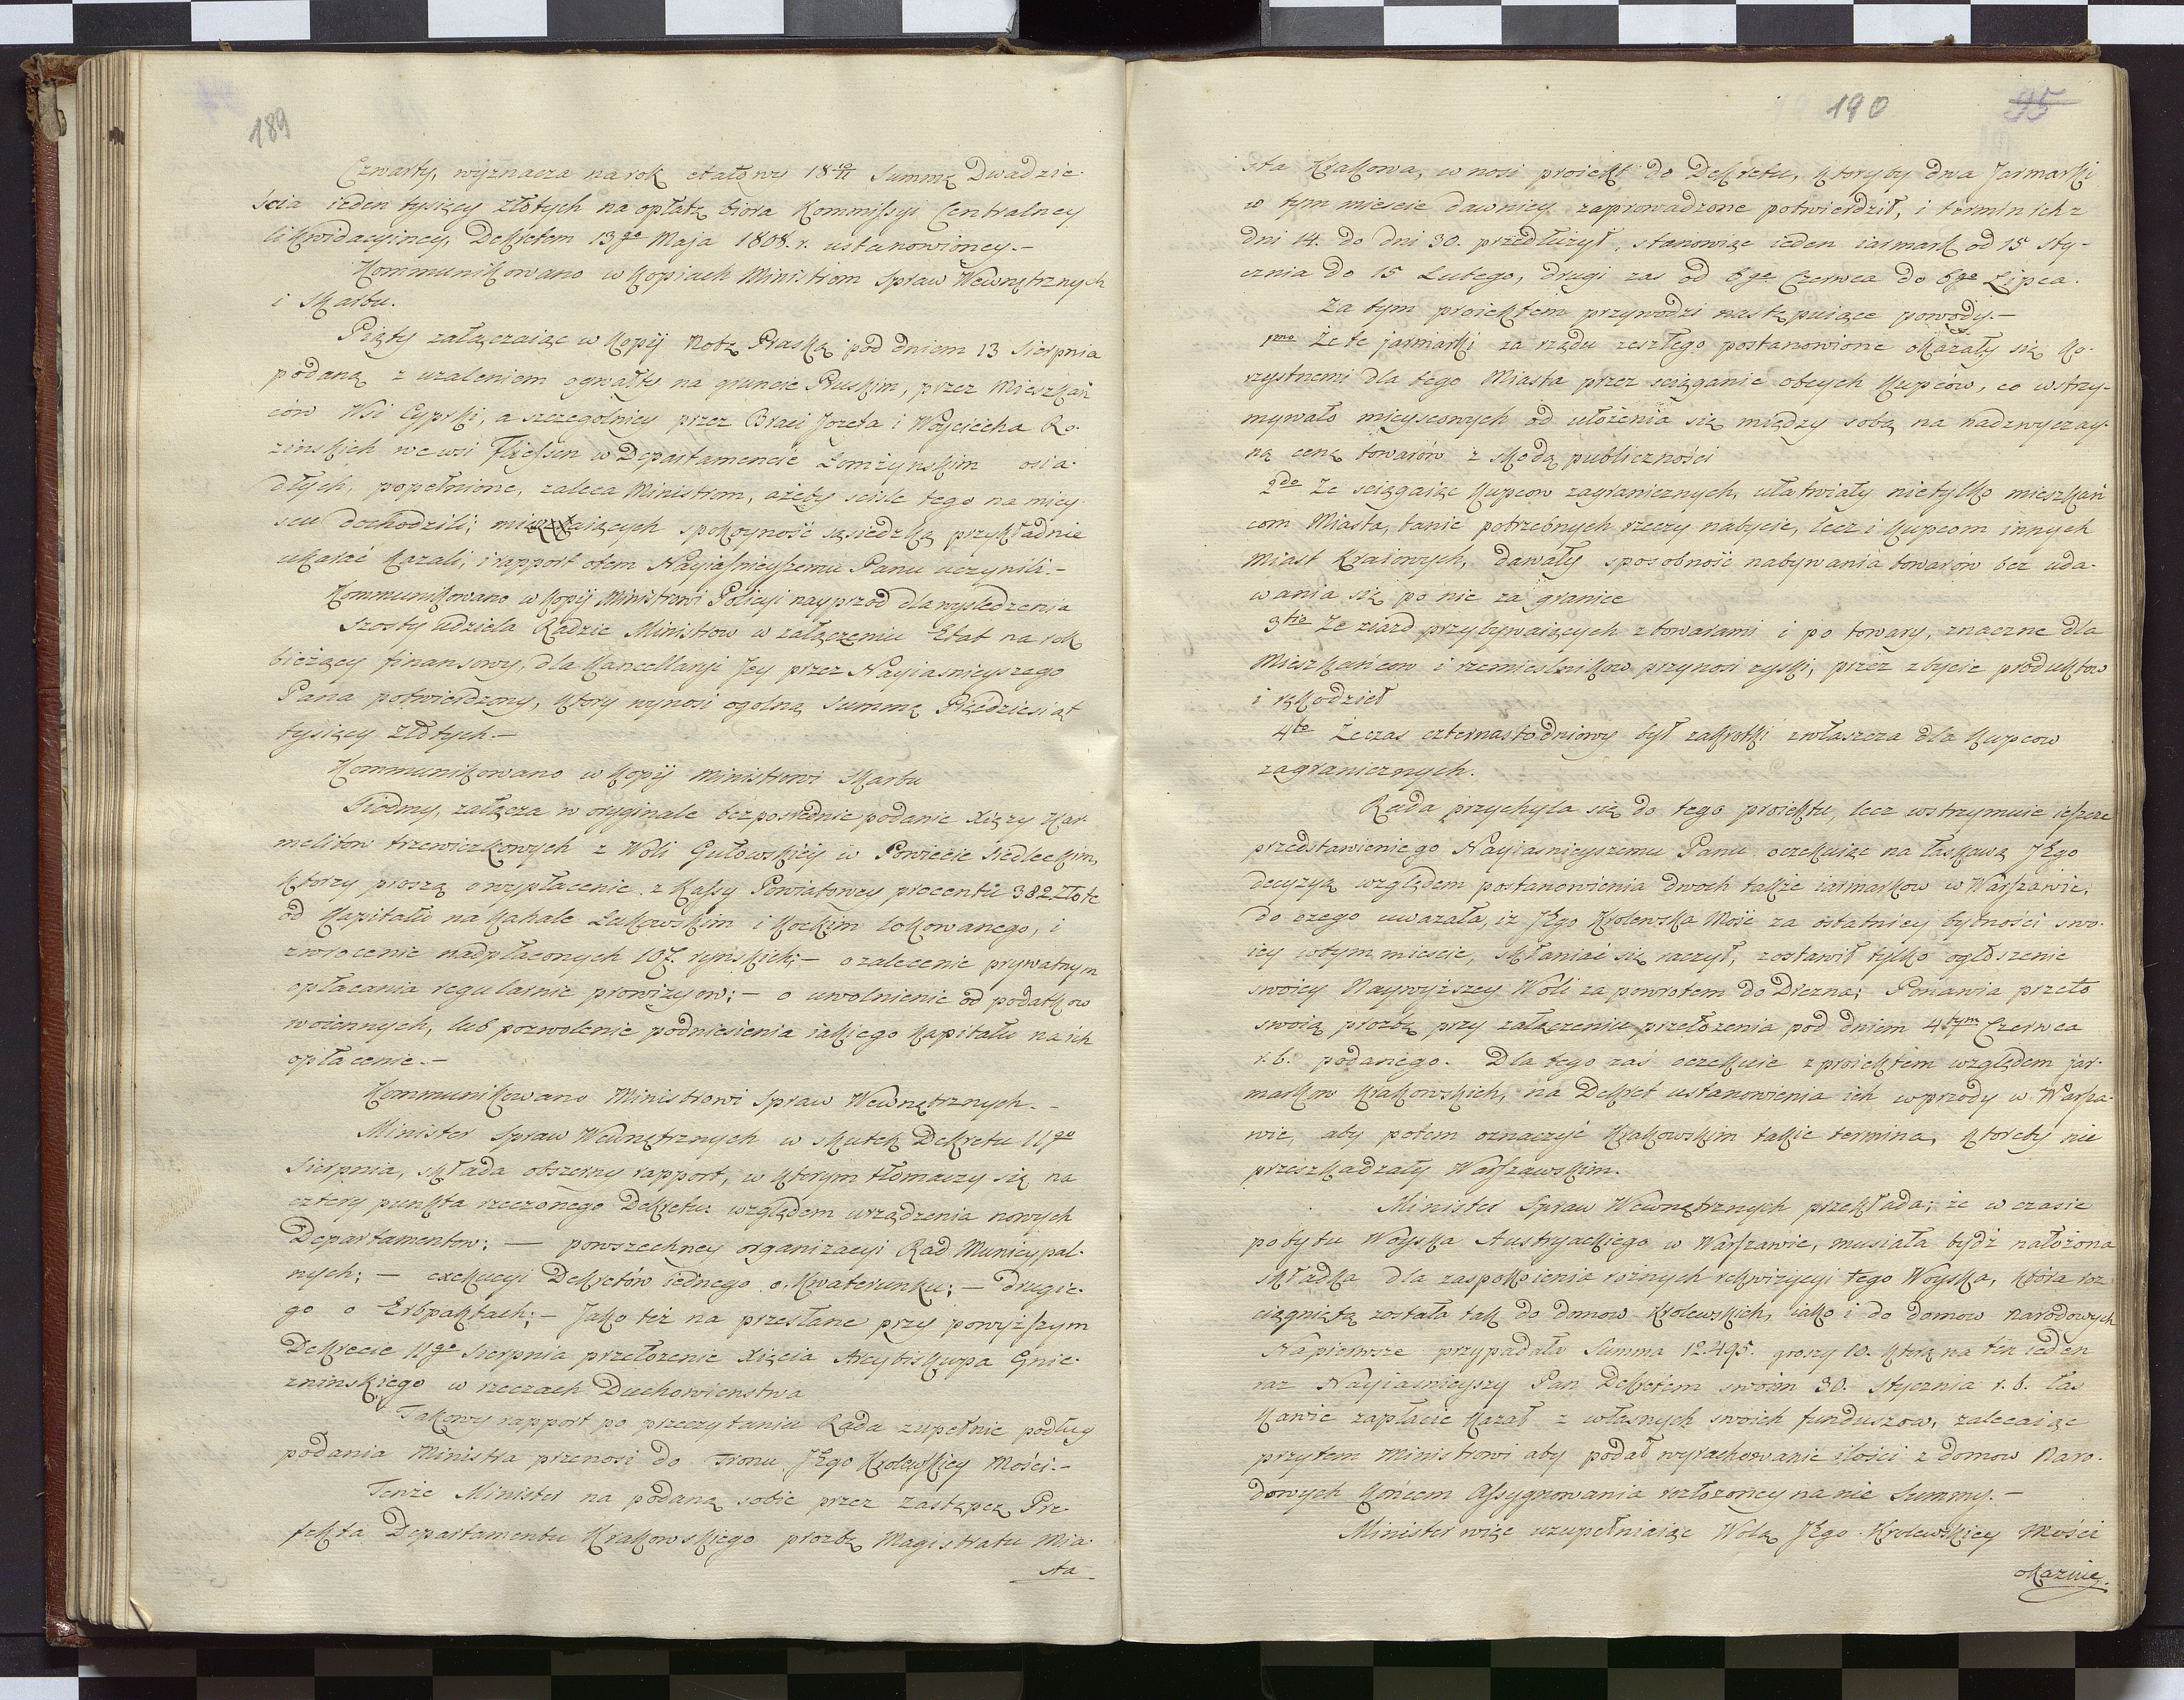 189
Czwarty, wyznacza na rok etatowy 18 10/11 Summę Dwadzie-
ścia ieden tysięcy złotych na opłatę biora Kommissyi Centralney
likwidacyiney, Dekretem 13go Maja 1808. r. ustanowioney.-
Kommunikowano w kopiach Ministrom Spraw Wewnętrznych
i Skarbu.
Piąty załączaiąc w kopij Notę Pruską pod dniem 13 Sierpnia
podaną z uzaleniem o gwałty na gruncie Pruskim, przez Mieszkań
ców Wsi Cyprki, a szczegolniey przez Braci Jozefa i Woyciecha Ro-
zinskich we wsi Fliessen w Departamencie Łomżynskim osia-
dłych, popełnione, zaleca Ministrom, ażeby scisle tego na miey
scu dochodzili; mieszkaiących spokoyność sąsiedzką przykładnie
ukarać kazali, i rapport o tem Nayiaśnieyszemu Panu uczynili.-
Kommunikowano w kopij Ministrowi Policyi nayprzod dla wysledzenia
Szosty udziela Radzie Ministrow w załączeniu Etat na rok
bieżący finansowy, dla Kancellaryi Jey przez Nayiasnieyszego
Pana potwierdzony, ktory wynosi ogolną Summę Pięćdziesiąt
tysięcy złotych.-
Kommunikowano w kopij Ministrowi Skarbu
Siodmy, załącza w oryginale bezposrednie podanie Xięzy Kar-
melitow trzewiczkowych z Woli Gułowskiéy w Powiecie Siedleckim,
ktorzy proszą o wypłacenie z Kassy Powiatowey procentu 382 Złote
od Kapitału na Kahale Łukowskim i Kockim lokowanego, i
zwrocenie nadpłaconych 107. rynskich;- o zalecenie prywatnym
opłacania regularnie prowizyow;- o uwolnienie od podatkow
woiennych, lub pozwolenie podniesienia iakiego kapitału na ich
opłacenie.-
Kommunikowano Ministrowi Spraw Wewnętrznych.-
Minister Spraw Wewnętrznych w skutek Dekretu 11go
Sierpnia, składa obszerny rapport, w ktorym tłomaczy się na
cztery punkta rzeczonego Dekretu: względem urządzenia nowych
Departamentow;- powszechney organizacyi Rad Municypal-
nych;- exekucyi Dekretów iednego o Kwaterunku;- drugie-
go o Erbpaktach;- Jako też na przesłane przy powyższym
Dekrecie 11go Sierpnia przełozenie Xięcia Arcybiskupa Gnie-
zninskiego w rzeczach Duchowienstwa
Takowy rapport po przeczytaniu Rada zupełnie podług
podania Ministra przenosi do Tronu JEgo Krolewskiey Mości.-
Tenże Minister na podaną sobie przez Zastępcę Pre-
fekta Departamentu Krakowskiego prozbę Magistratu Mia-
sta
190
95
sta Krakowa, wnosi proiekt do Dekretu, ktoryby dwa Jarmarki
w tym miescie dawniey zaprowadzone potwierdził, i termin ich z
dni 14. do dni 30. przedłużył, stanowiąc ieden iarmark od 15 Sty-
cznia do 15 Lutego, drugi zas od 6go Czerwca do 6go Lipca.
Za tym proiektem przywodzi nastepuiące powody.-
1mo Że te jarmarki za rządu zeszłego postanowione okazały się ko-
rzystnemi dla tego Miasta przez sciąganie obcych kupców, co wstrzy-
mywało mieyscowych od ułożenia się między sobą na nadzwyczay-
ną cenę towarów z skodą publiczności
2do Ze sciągaiąc kupcow zagranicznych, ułatwiały nietylko mieszkań
com Miasta, tanie potrzebnych rzeczy nabycie, lecz i kupcom innych
Miast Kraiowych, dawały sposobność nabywania towarów bez uda-
wania się po nie za granice
3tio Ze ziazd przybywaiących z towarami i po towary, znaczne dla
Mieszkańcow i rzemieslnikow przynosi zyski, przez zbycie produktow
i rękodzieł
4to Że czas czternastodniowy był zakrotki zwłaszcza dla kupcow
zagranicznych.
Rada przychyla się do tego proiektu, lecz wstrzymuie ieszcze
przedstawienie go Nayiasnieyszemu Panu oczekuiąc na łaskawą JEgo
decyzyą względem postanowienia dwoch także iarmarkow w Warszawie,
do czego uwazała, iz JEgo Krolewska Mość za ostatniey bytności swo-
iey w tym miescie, skłaniać się raczył, zostawił tylko ogłoszenie
swoiey Naywyższey Woli za powrotem do Drezna; Ponawia przeto
swoią prozbę przy załączeniu przełozenia pod dniem 4tym Czerwca
r. b. podanego. Dla tego zaś oczekuie z proiektem względem jar-
markow Krakowskich, na Dekret ustanowienia ich wprzody w Warsza-
wie, aby potem oznaczyć Krakowskim takie termina, ktoreby nie
przeszkadzały Warszawskim.
Minister Spraw Wewnętrznych przekłada; że w czasie
pobytu Woyska Austryackiego w Warszawie, musiała bydź nałożona
składka dla zaspokoienia rożnych rekwizycyi tego Woyska, która roz
ciągniętą została tak do domow Krolewskich, iako i do domow Narodowych
Na pierwsze przypadała Summa 12.495. groszy 10. którą na ten ieden
raz Nayiasnieyszy Pan Dekretem swoim 30. Stycznia r. b. łas
kawie zapłacić kazał z własnych swoich funduszow, zalecaiąc
przytem Ministrowi aby podał wyrachowanie ilości z domow Naro-
dowych końcem Assygnowania rozłożoney na nie Summy.-
Minister więc uzupełniaiąc Wolą JEgo Krolewskiey Mości
okazuie.